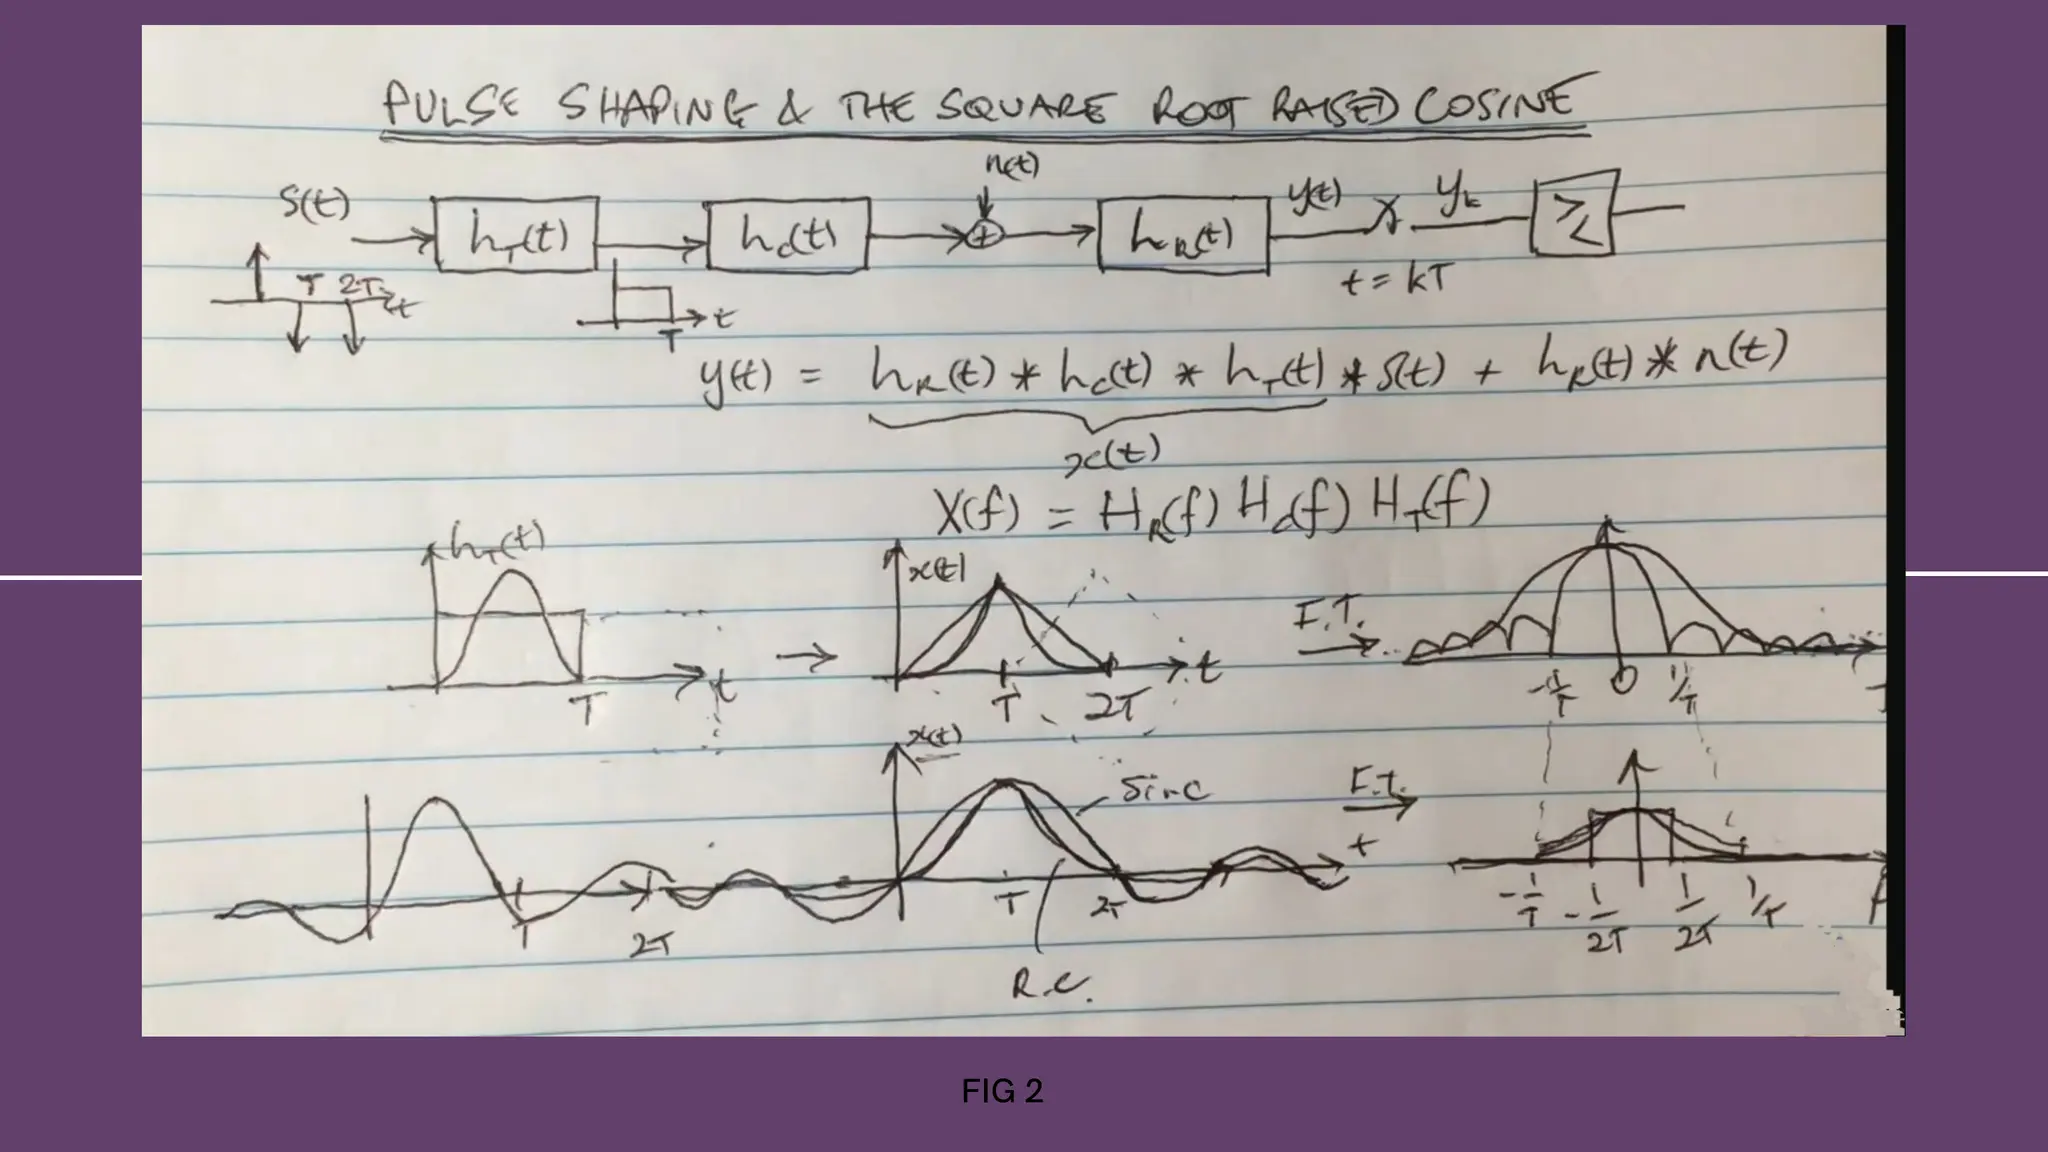 PULSE SHAPING & THE SQUARE ROOT RAISED COSINE
n(t)
S(t)
h_T(t)
h_c(t)
+
h_R(t)
y(t)
y_k
≷
T 2T t
t = kT
T t
y(t) = h_R(t) * h_c(t) * h_T(t) * S(t) + h_R(t) * n(t)
x(t)
X(f) = H_R(f) H_c(f) H_T(f)
h_T(t)
x(t)
F.T.
T t
T 2T t
-1/T 0 1/T
x(t)
Sinc
F.T.
t
T 2T
T 2T
-1/T -1/2T 1/2T 1/T f
R.C.
FIG 2